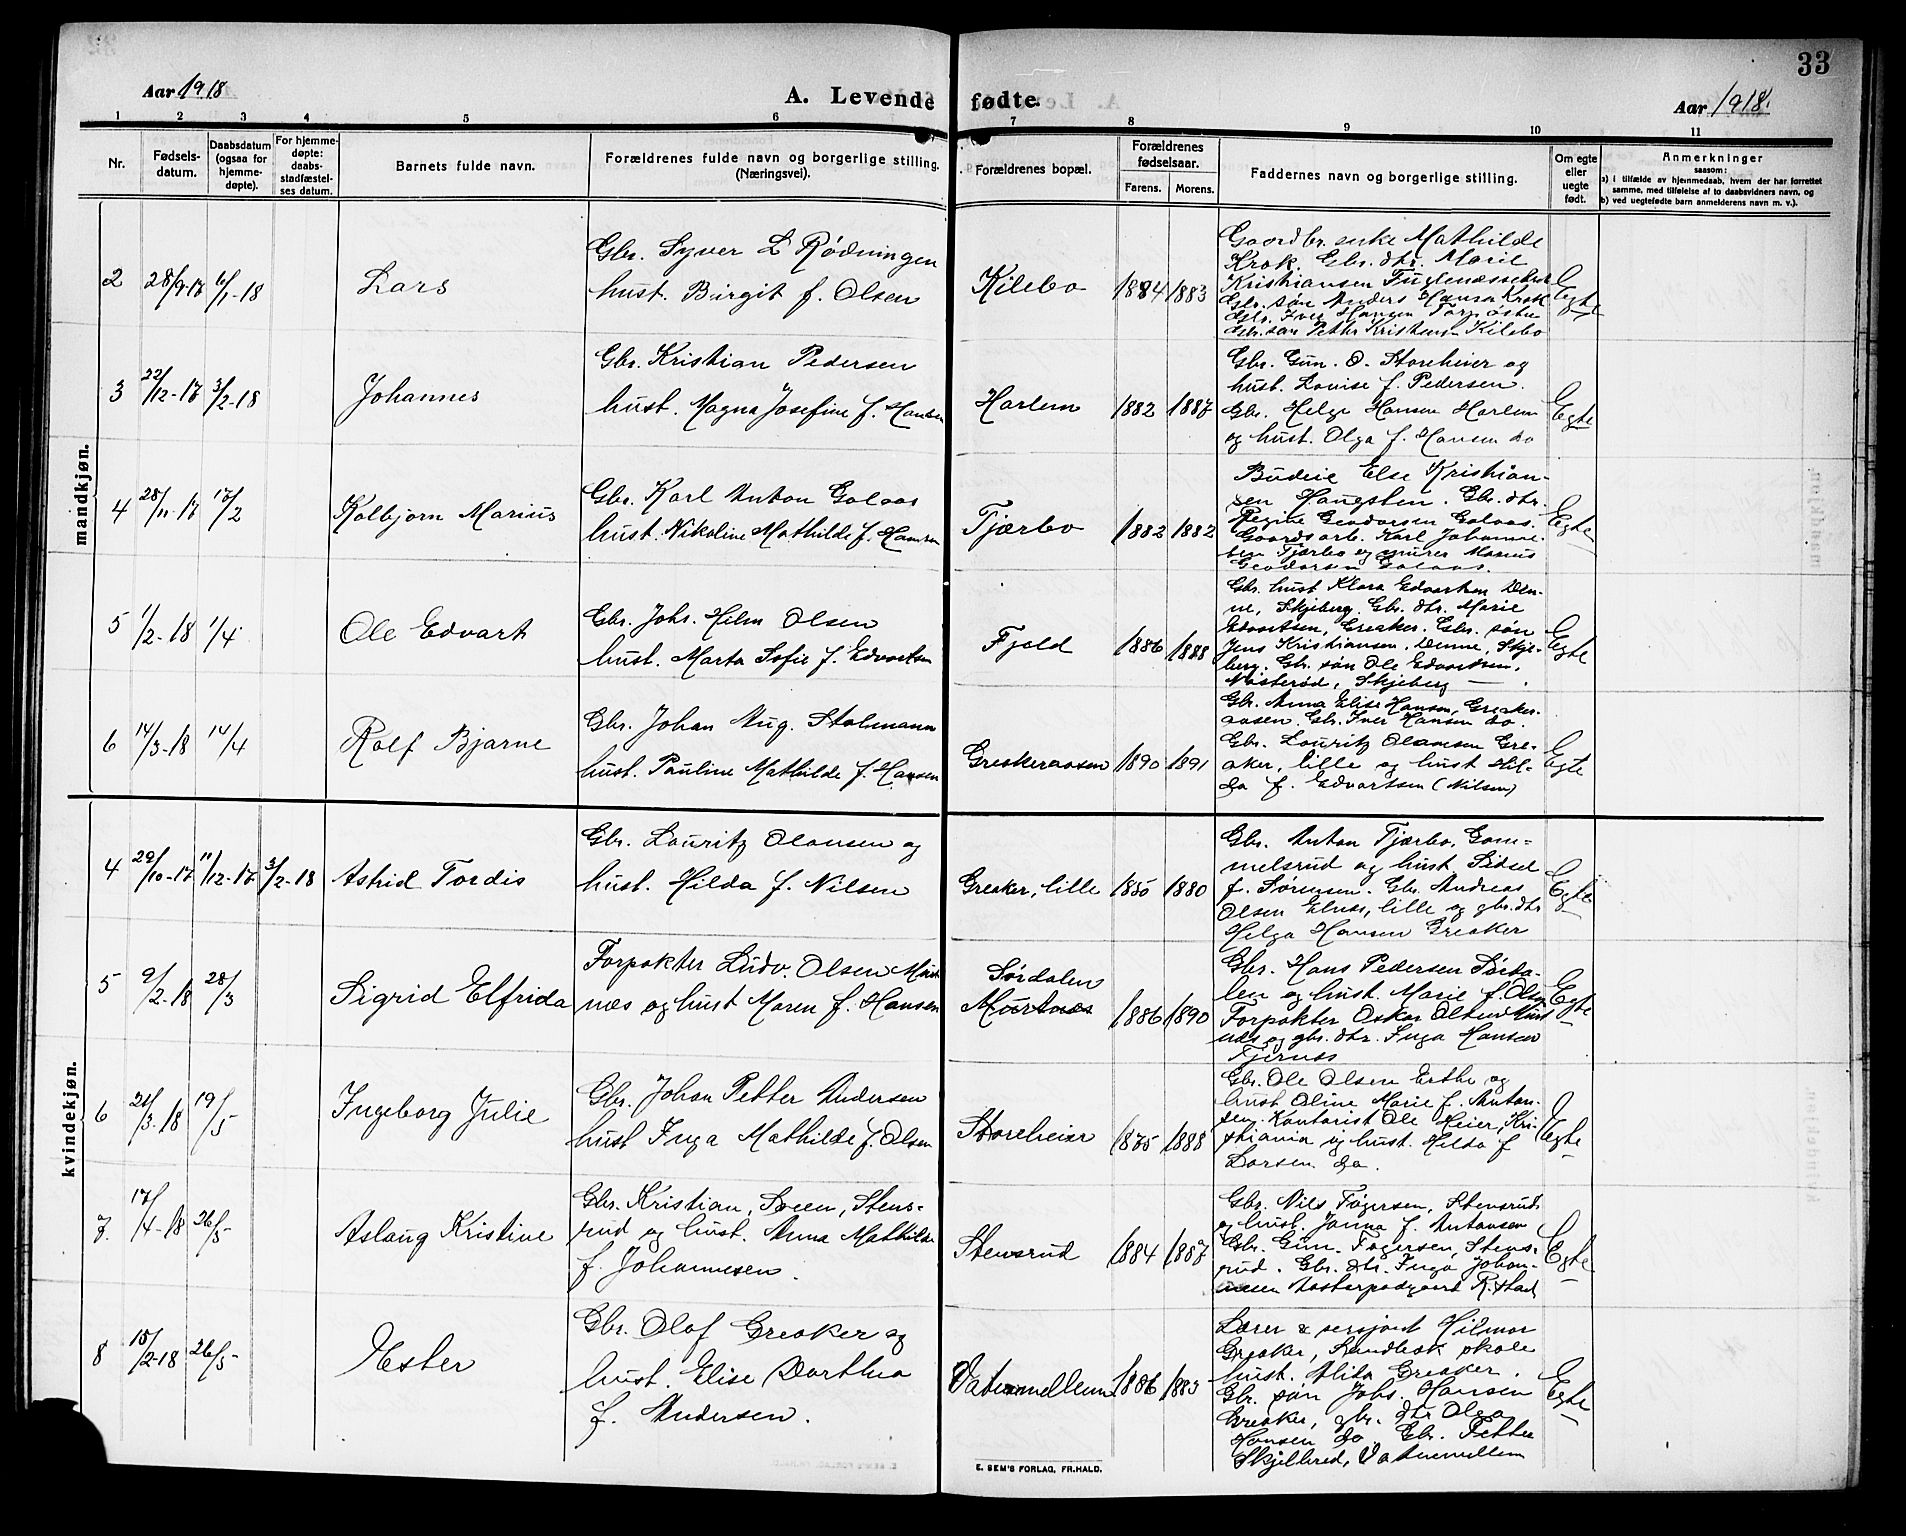 33
Aar 1918
A. Levende fødte.
Aar 1918.
1 2 3 4 5 6 7 8 9 10 11
Nr.
Fødsels-
datum.
Daabsdatum
(ogsaa for
hjemme-
døpte).
For hjemme-
døpte:
daabs-
stadfæstel-
ses datum.
Barnets fulde navn.
Forældrenes fulde navn og borgerlige stilling.
(Næringsvei).
Forældrenes bopæl.
Forældrenes
fødselsaar.
Farens. Morens.
Faddernes navn og borgerlige stilling.
Om egte
eller
uegte
født.
Anmerkninger
saasom:
a) i tilfælde av hjemmedaab, hvem der har forrettet
samme, med tilføielse af to daabsvidners navn, og
b) ved uegtefødte barn anmelderens navn m. v.).
mandkjøn.
2 28/9-17 6/1-18
Lars
Gbr. Syver L Rødningen
hust. Birgit f. Olsen
Kilebo 1884 1883
Gaardbr. enke Mathilde
Krok. Gbr. dtr. Marie
Kristiansen
Gbr. søn Anders Hansen Krok
Gbr. Iver Hansen
Gbr. søn Petter Kristensen Kilebo
Egte
3 22/12-17 3/2-18
Johannes
Gbr. Kristian Pedersen
hust. Magna Josefine f. Hansen
Harlem 1882 1887
Gbr. Gun. O. Storeheier og
hust. Louise f. Pedersen.
Gbr. Helge Hansen Harlem
og hust. Olga f. Hansen do
Egte
4 28/11-17 17/2
Kolbjørn Marius
Gbr. Karl Anton Golaas
hust. Nikoline Mathilde f. Hansen
Tjærbo 1882 1882
Budeie Else Kristian-
sen Haugsten. Gbr. dtr.
Regine Geodorsen Golaas.
Gaardsarb. Karl Johanne-
sen Tjærbo og murer Marius
Geodorsen Golaas.
Egte
5 1/2-18 1/4
Ole Edvart
Gbr. Johs. Hilm Olsen
hust. Marta Sofie f. Edvartsen
Fjeld 1886 1888
Gbr. hust Klara Edvartsen Den-
ne, Skjeberg. Gbr. dtr. Marie
Edvartsen, Greaker. Gbr. søn
Jens Kristiansen, Denne, Skje-
berg. Gbr. søn Ole Edvardsen,
Nisterød, Skjeberg — .
Egte
6 14/3-18 14/4
Rolf Bjarne
Gbr. Johan Aug. Stolmann
hust. Pauline Mathilde f. Hansen
Greakeraasen 1890 1891
Gbr. Anna Elise Hansen, Greaker-
aasen. Gbr. Iver Hansen do.
Gbr. Louritz Olaussen Gre-
aker, lille og hust Hil-
da f. Edvartsen (Nilsen)
Egte
kvindekjøn.
4 29/10-17 11/12-17 3/2-18
Astrid Tordis
Gbr. Louritz Olausen og
hust. Hilda f. Nilsen
Greaker, lille 1880
Gbr. Anton Tjærbo, Gam-
melsrud og hust. Sidsel
f. Sørensen. Gbr. Andreas
Olsen Elnes, lille og gbr. dtr
Helga Hansen Greaker
Egte
5 9/2-18 28/3
Sigrid Elfrida
Forpakter Ludv. Olsen Murt-
næs og hust Maren f. Hansen
Sørdalen
Murtnæs 1886 1890
Gbr. Hans Pedersen Sørda-
len og hust. Marie f. Olsen
Forpakter Oskar Olsen Murt
næs og gbr. dtr. Inga Hansen
Tjernæs
Egte
6 21/3-18 19/5
Ingeborg Julie
Gbr. Johan Petter Andersen
hust Inga Mathilde f. Olsen
Storeheier 1875 1888
Gbr. Ole Olsen Erthe og
hust Oline Marie f. Anton-
sen. Kontorist Ole Heier, Kri-
stiania og hust. Hilda f
Larsen do.
Egte
7. 17/4-18 26/5
Aslaug Kristine
Gbr. Kristian, Sveen, Stens-
rud og hust. Anna Mathilde
f. Johannesen.
Stensrud 1884 1887
Gbr. Nils Fagersen, Stensrud
og hust. Janna f. Antonsen
Gbr. Gun. Fagersen, Stens-
rud. Gbr. dtr. Inga Johan-
nesen
Egte
8 15/2-18 26/5
Ester
Gbr. Olaf Greaker og
hust. Elise Dorthea
f. Andersen.
Vatnemellem 1886 1883
Lærer & sersjant Hilmar
Greaker, Sandbæk skole
hust. Alida Greaker.
Gbr. søn Johs. Hansen
Greaker, gbr. dtr Olga
Hansen do. Gbr. Petter
Skjelbred, Vatnemellem
Egte
E. SEM'S FORLAG, FR.HALD.